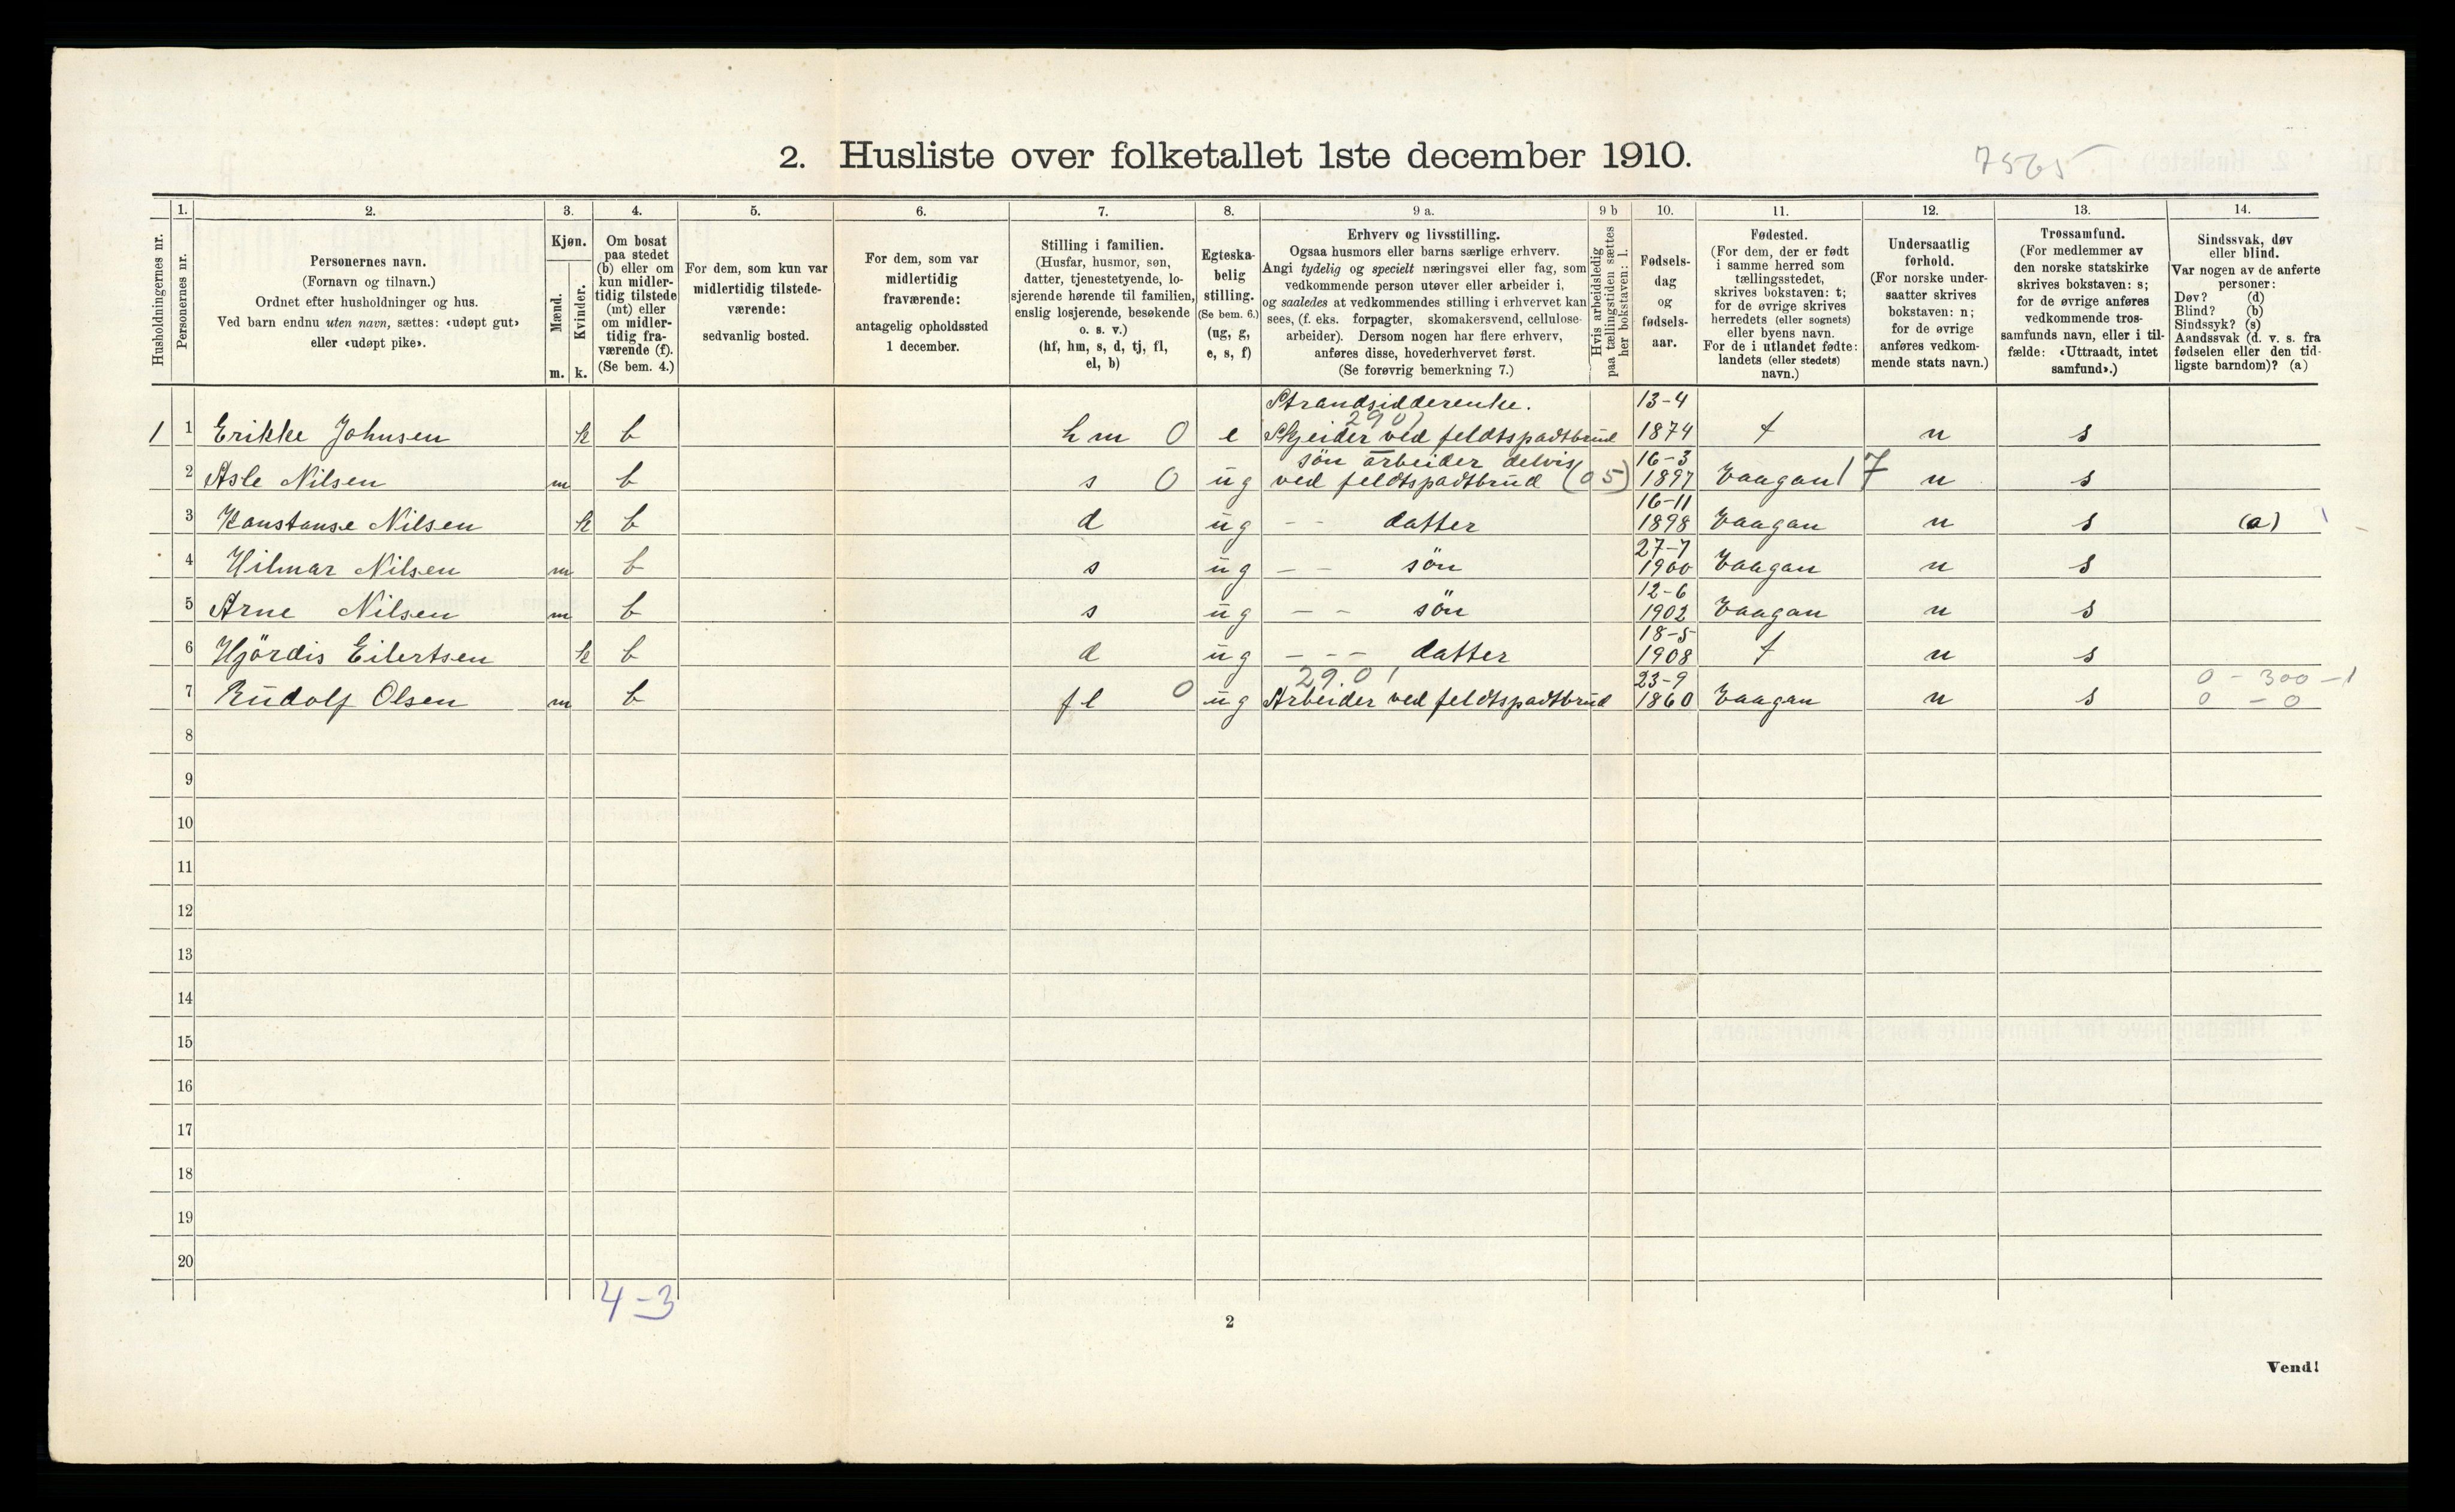 2. Husliste over folketallet 1ste december 1910.
7565
Husholdningernes nr.
1.
Personernes nr.
2.
Personernes navn.
(Fornavn og tilnavn.)
Ordnet efter husholdninger og hus.
Ved barn endnu uten navn, sættes: «udøpt gut»
eller «udøpt pike».
3.
Kjøn.
Mænd.
Kvinder.
m. k.
4.
Om bosat
paa stedet
(b) eller om
kun midler-
tidig tilstede
(mt) eller
om midler-
tidig fra-
værende (f).
(Se bem. 4.)
5.
For dem, som kun var
midlertidig tilstede-
værende:
sedvanlig bosted.
6.
For dem, som var
midlertidig
fraværende:
antagelig opholdssted
1 december.
7.
Stilling i familien.
(Husfar, husmor, søn,
datter, tjenestetyende, lo-
sjerende hørende til familien,
enslig losjerende, besøkende
o. s. v.)
(hf, hm, s, d, tj, fl,
el, b)
8.
Egteska-
belig
stilling.
(Se bem. 6.)
(ug, g,
e, s, f)
9 a.
Erhverv og livsstilling.
Ogsaa husmors eller barns særlige erhverv.
Angi tydelig og specielt næringsvei eller fag, som
vedkommende person utøver eller arbeider i,
og saaledes at vedkommendes stilling i erhvervet kan
sees, (f. eks. forpagter, skomakersvend, cellulose-
arbeider). Dersom nogen har flere erhverv,
anføres disse, hovederhvervet først.
(Se forøvrig bemerkning 7.)
9 b
Hvis arbeidsledig
paa tællingstiden sættes
her bokstaven: l.
10.
Fødsels-
dag
og
fødsels-
aar.
11.
Fødested.
(For dem, der er født
i samme herred som
tællingsstedet,
skrives bokstaven: t;
for de øvrige skrives
herredets (eller sognets)
eller byens navn.
For de i utlandet fødte:
landets (eller stedets)
navn.)
12.
Undersaatlig
forhold.
(For norske under-
saatter skrives
bokstaven: n;
for de øvrige
anføres vedkom-
mende stats navn.)
13.
Trossamfund.
(For medlemmer av
den norske statskirke
skrives bokstaven: s;
for de øvrige anføres
vedkommende tros-
samfunds navn, eller i til-
fælde: «Uttraadt, intet
samfund».)
14.
Sindssvak, døv
eller blind.
Var nogen av de anførte
personer:
Døv? (d)
Blind? (b)
Sindssyk? (s)
Aandssvak (d. v. s. fra
fødselen eller den tid-
ligste barndom)? (a)
Strandsidderenke. 13-4
2901
1 1 Erikke Johnsen k b hm 0 e Skjeider ved feldtspadtbrud 1874 t n s
søn arbeider delvis 16-3
2 Asle Nilsen m b s 0 ug ved feldtspadtbrud (05) 1897 Vaagan 17 n s
16-11
3 Konstanse Nilsen k b d ug - - datter 1898 Vaagan n s (a)
27-7
4 Hilmar Nilsen m b s ug - - søn 1900 Vaagan n s
12-6
5 Arne Nilsen m b s ug - - søn 1902 Vaagan n s
18-5
6 Hjördis Eilertsen k b d ug - - - datter 1908 t n s
29.01 23-9 0 - 300 - 1
7 Rudolf Olsen m b fl 0 ug Arbeider ved feldtspadtbrud 1860 Vaagan n s 0 - 0
8
9
10
11
12
13
14
15
16
17
18
19
20
4-3
2
Vend!